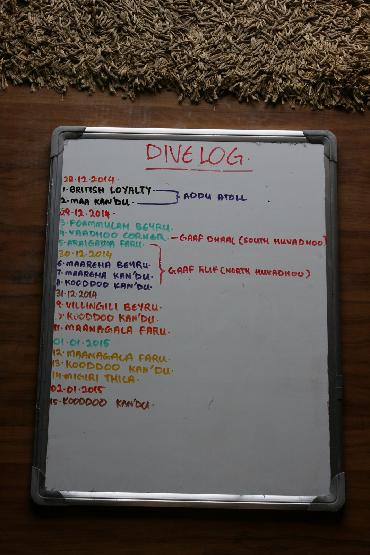 DIVE LOG.
28.12.2014
1. BRITISH LOYALTY
2. MAA KAN'DU.
ADDU ATOLL
29.12.2014
3. FOAMMULAH BEYRU.
4. VAADHOO CORNER. - GAAF DHAAL (SOUTH HUVADHOO)
5. ARAIGATHA FARU.
30.12.2014
6. MAAREHA BEYRU.
7. MAAREHA KAN'DU.
GAAF ALIF (NORTH HUVADHOO)
8. KOODDOO KAN'DU.
31.12.2014
9. VILLINGILI BEYRU.
KOODDOO KAN'DU.
11. MAANAGALA FARU.
01.01.2015
12. MAANAGALA FARU.
13. KOODDOO KAN'DU.
14. MIGIRI THILA.
02.01.2015
15. KOODDOO KAN'DU.